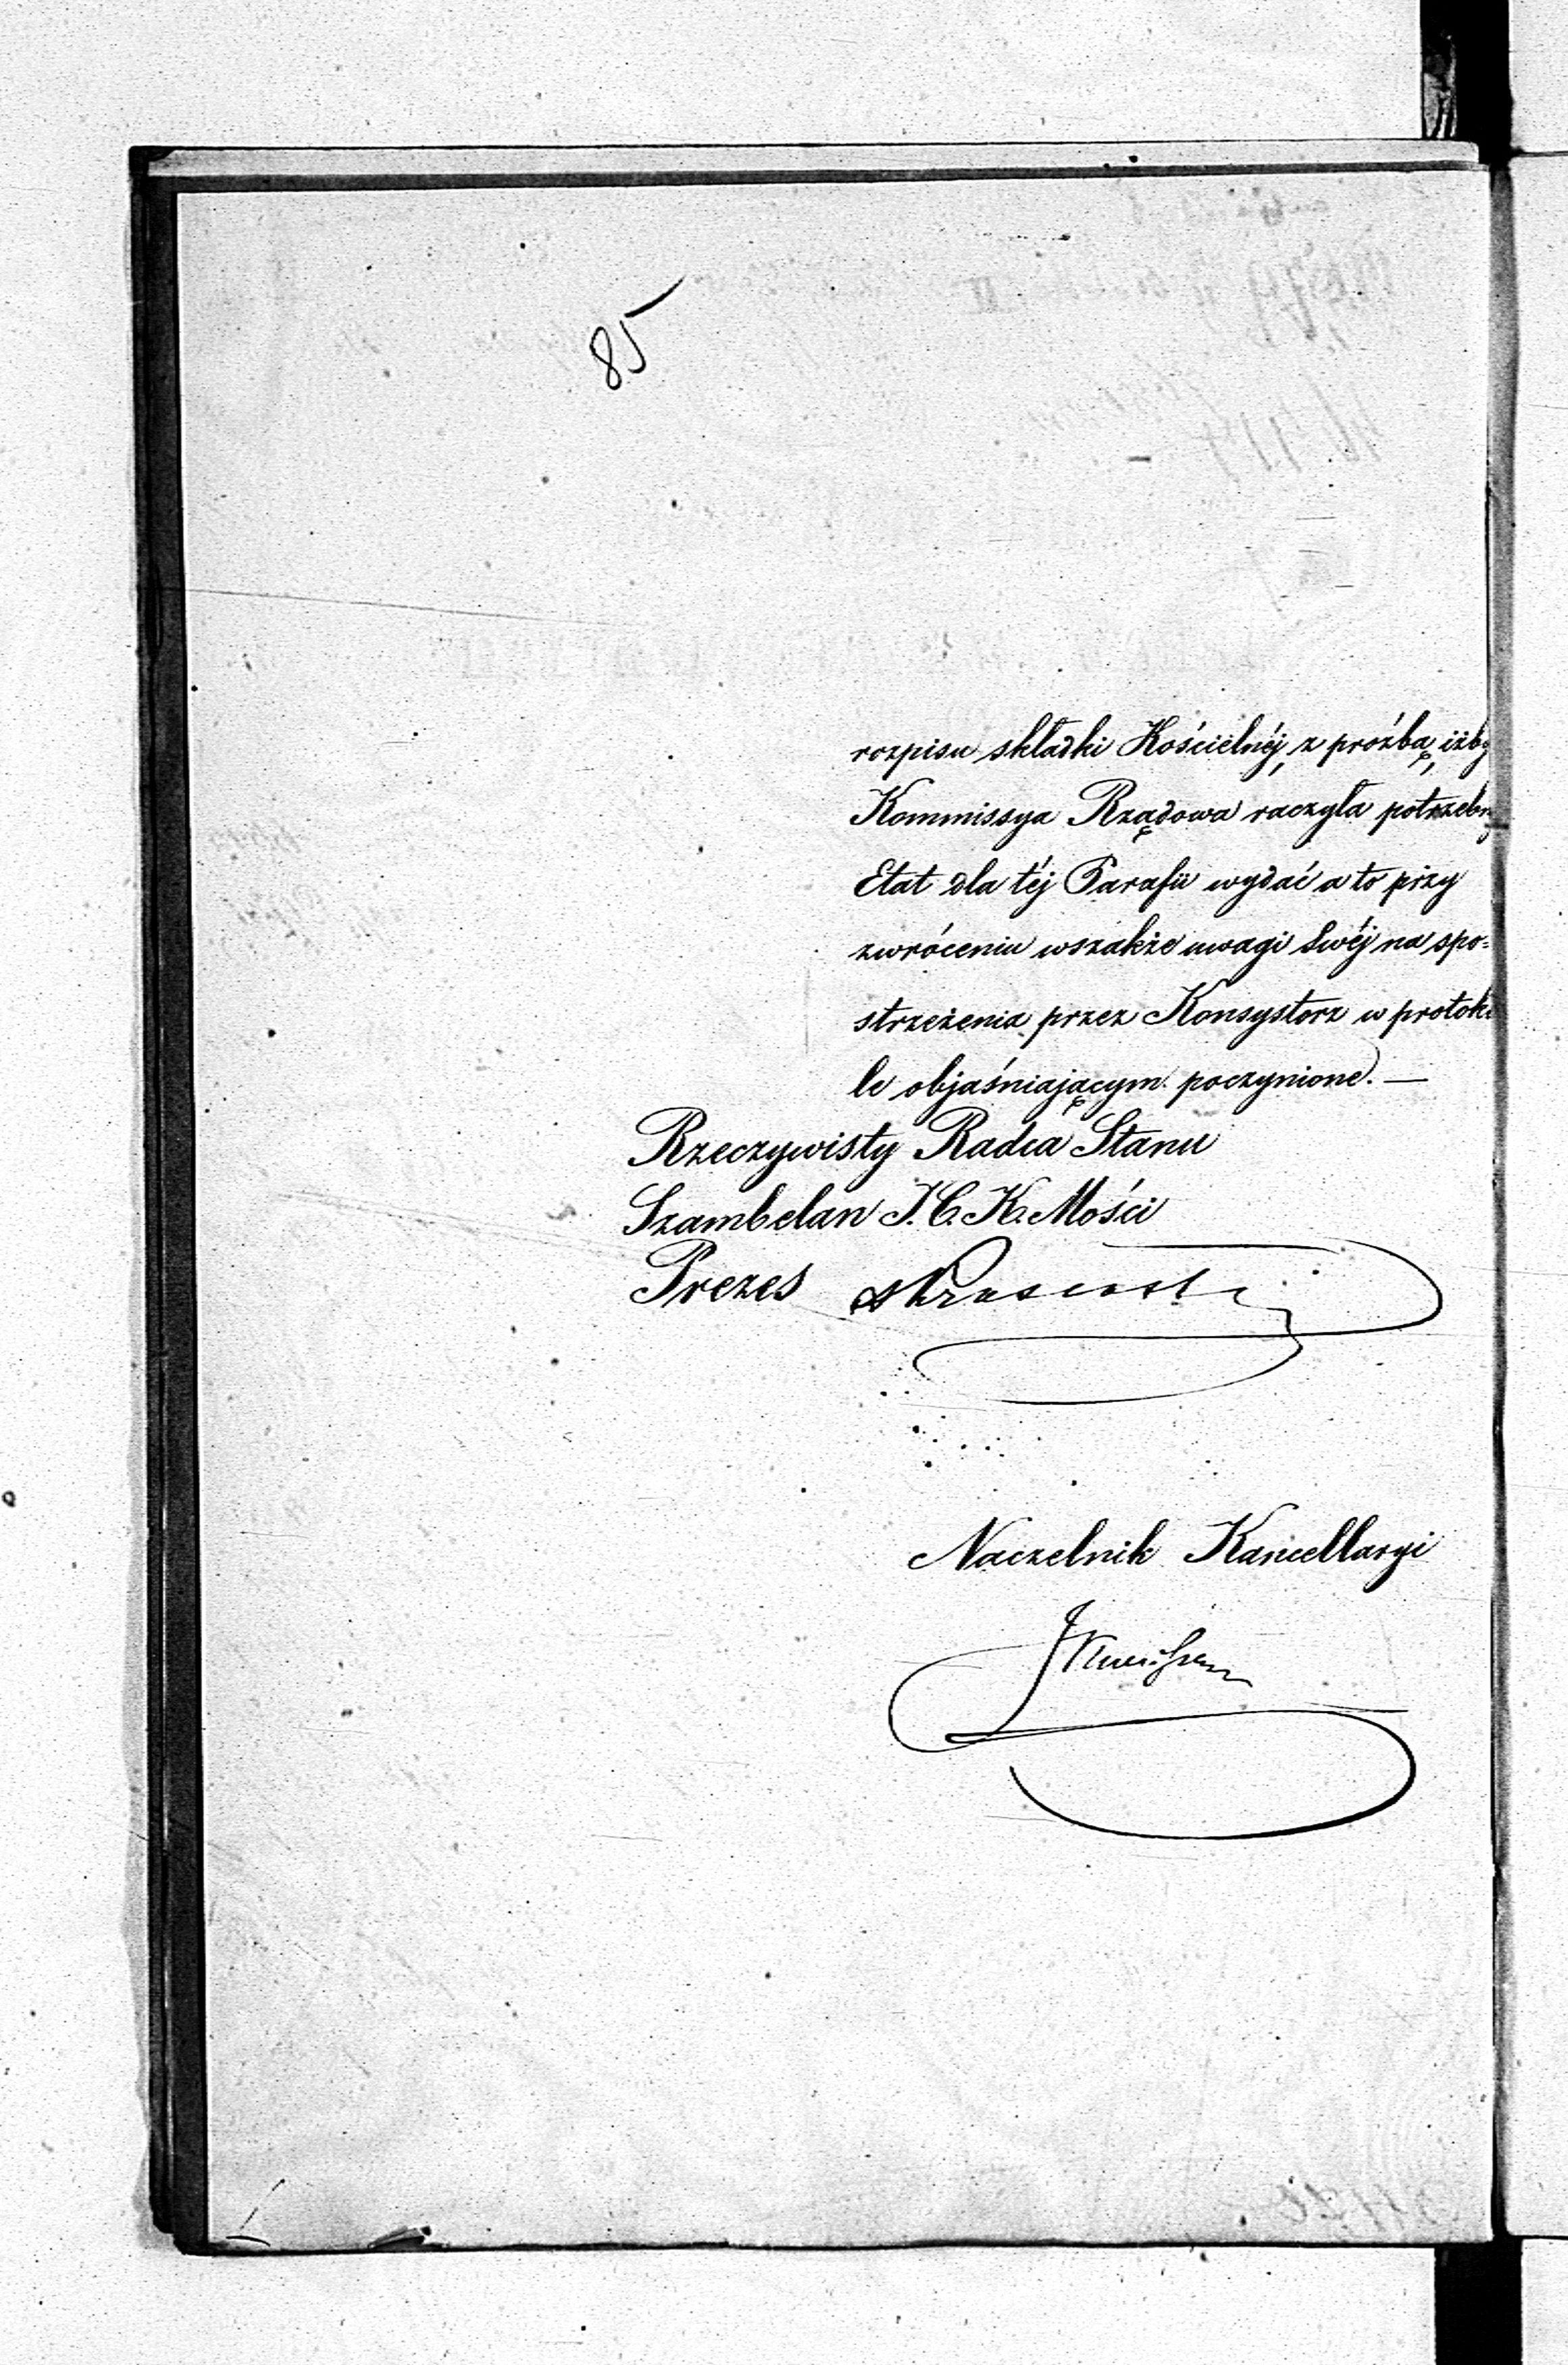 85
rozpisu składki Kościelnéj, z proźbą, iżby
Kommissya Rządowa raczyła potrzebny
Etat dla téj Parafii wydać a to przy
zwróceniu wszakże uwagi Swéj na spo=
strzeżenia przez Konsystorz w protoko
le objaśniającym poczynione. —
Rzeczywisty Radca Stanu
Szambelan J. C. K. Mości
Prezes
Naczelnik Kancellaryi